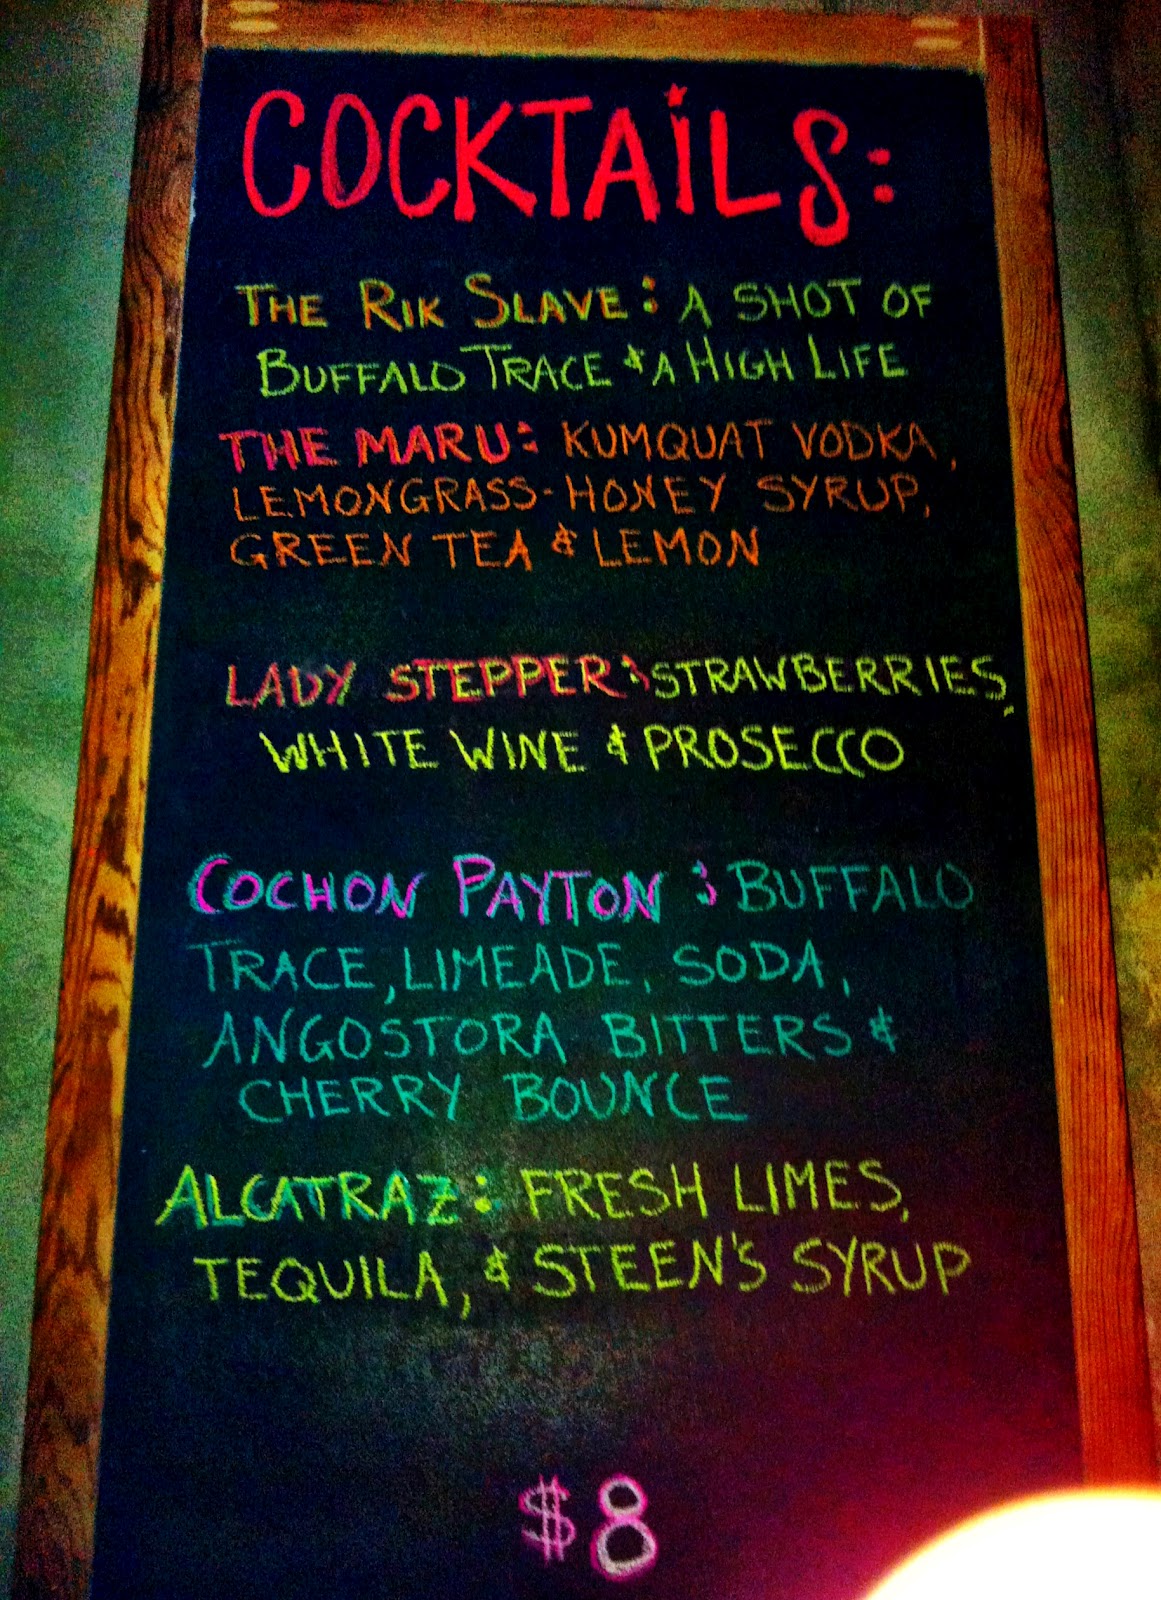 COCKTAILS:
THE RIK SLAVE: A SHOT OF
BUFFALO TRACE & A HIGH LIFE
THE MARU: KUMQUAT VODKA,
LEMONGRASS-HONEY SYRUP,
GREEN TEA & LEMON
LADY STEPPER: STRAWBERRIES,
WHITE WINE & PROSECCO
COCHON PAYTON: BUFFALO
TRACE, LIMEADE, SODA,
ANGOSTORA BITTERS &
CHERRY BOUNCE
ALCATRAZ: FRESH LIMES,
TEQUILA, & STEEN'S SYRUP
$8